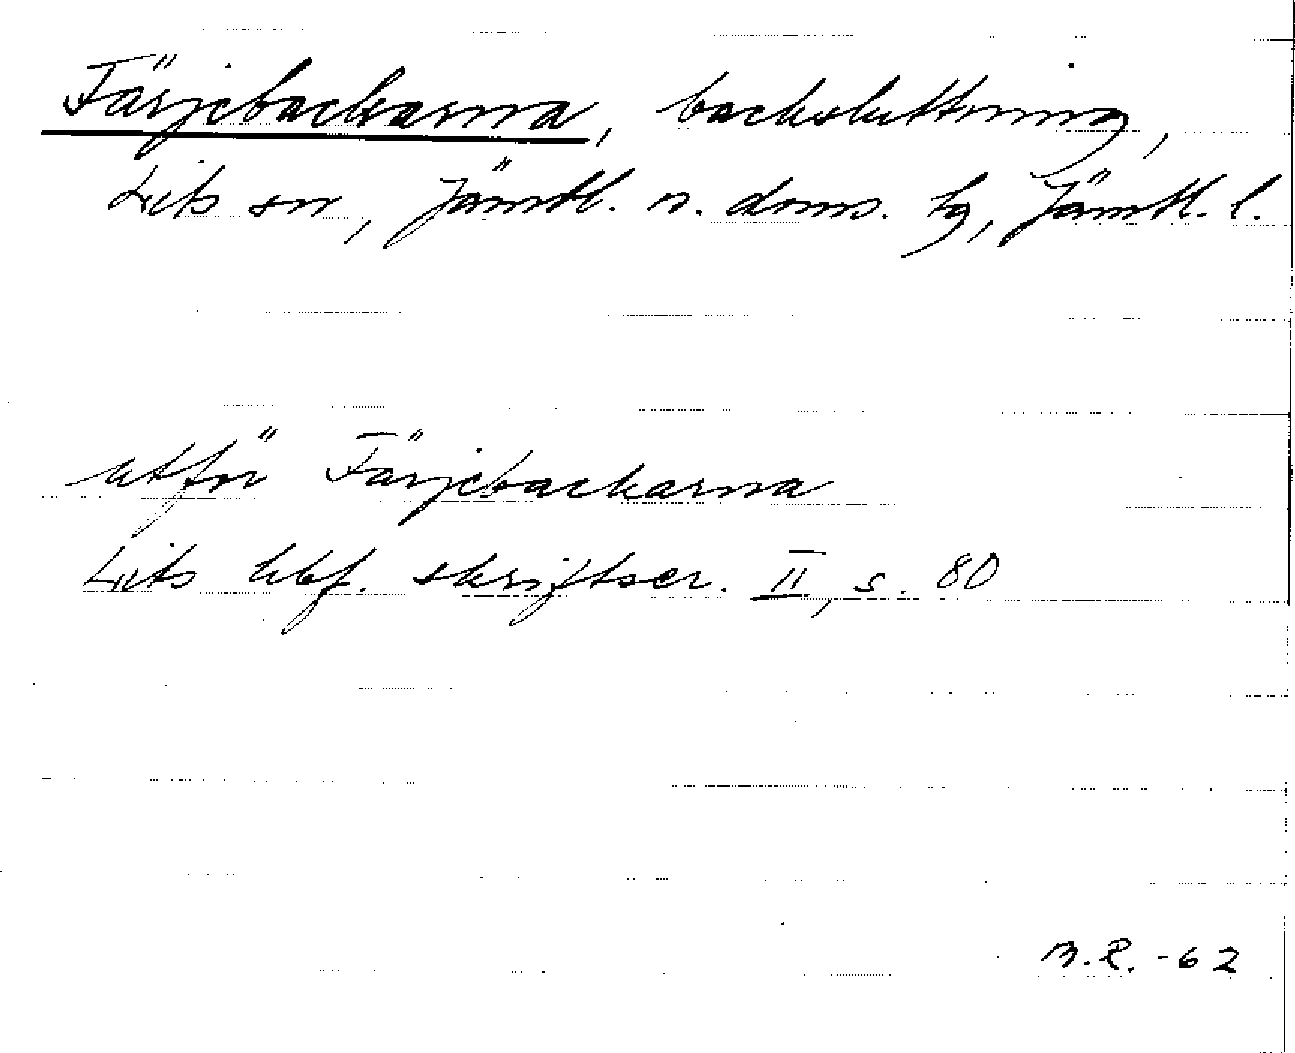 Färjebackarna, backsluttning,
Lits sn, Jämtl. n. doms. tg, Jämtl. l.
utför Färjebackarna
Lits hbf. skriftser. II, s. 80
B.R. -62